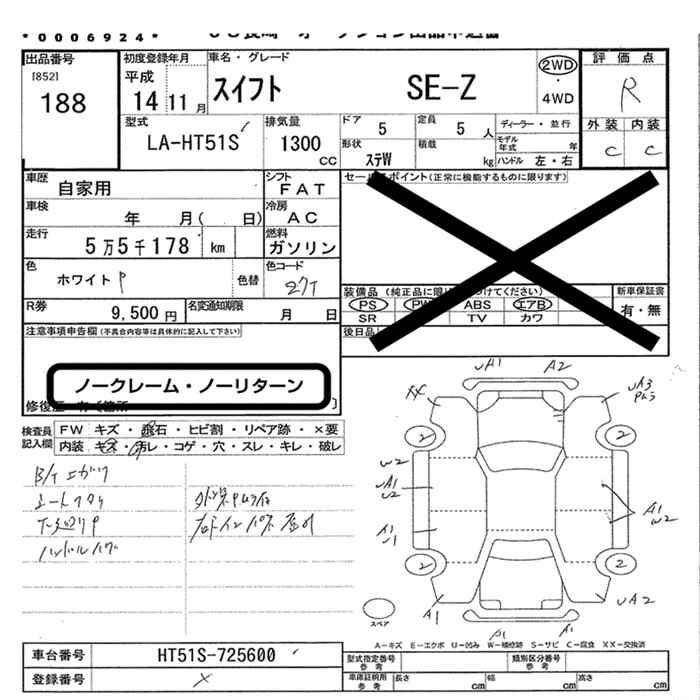 *0006924*
出品番号
[852]
188
初度登録年月
平成
14 11 月
車名・グレード
スイフト SE-Z
2WD
・
4WD
評価点
R
外装 内装
C C
型式
LA-HT51S
排気量
1300
cc
ドア
5
定員
5 人
ディーラー・並行
モデル年式 年
形状
ステW
積載
kg
ハンドル 左・右
車歴
自家用
シフト
FAT
車検
年 月( 日)
冷房
AC
走行
5万5千178 km
燃料
ガソリン
色
ホワイトP
色替
色コード
27T
R券
9,500 円
名変通知期限
月 日
セールスポイント(正常に機能するものに限ります)
装備品
PS PW ABS エアB
SR TV カワ
新車保証書
有・無
後日品
注意事項申告欄(不具合内容等は具体的に記入して下さい)
ノークレーム・ノーリターン
修復歴
検査員記入欄
FW キズ・飛石・ヒビ割・リペア跡・×要
内装 キズ・汚レ・コゲ・穴・スレ・キレ・破レ
ハンドルハゲ
UA1 A2
XX
UA3
2 2
W2
UA1
U2
A1
U1
A1
W2
2 2
A1
UA2
スペア
A1
A-キズ E-エクボ U-凹み W-補修跡 S-サビ C-腐食 XX-交換済
車台番号
HT51S-725600
登録番号
型式指定番号
参考
類別区分番号
参考
車庫証明用
参考
長さ cm
幅 cm
高さ cm